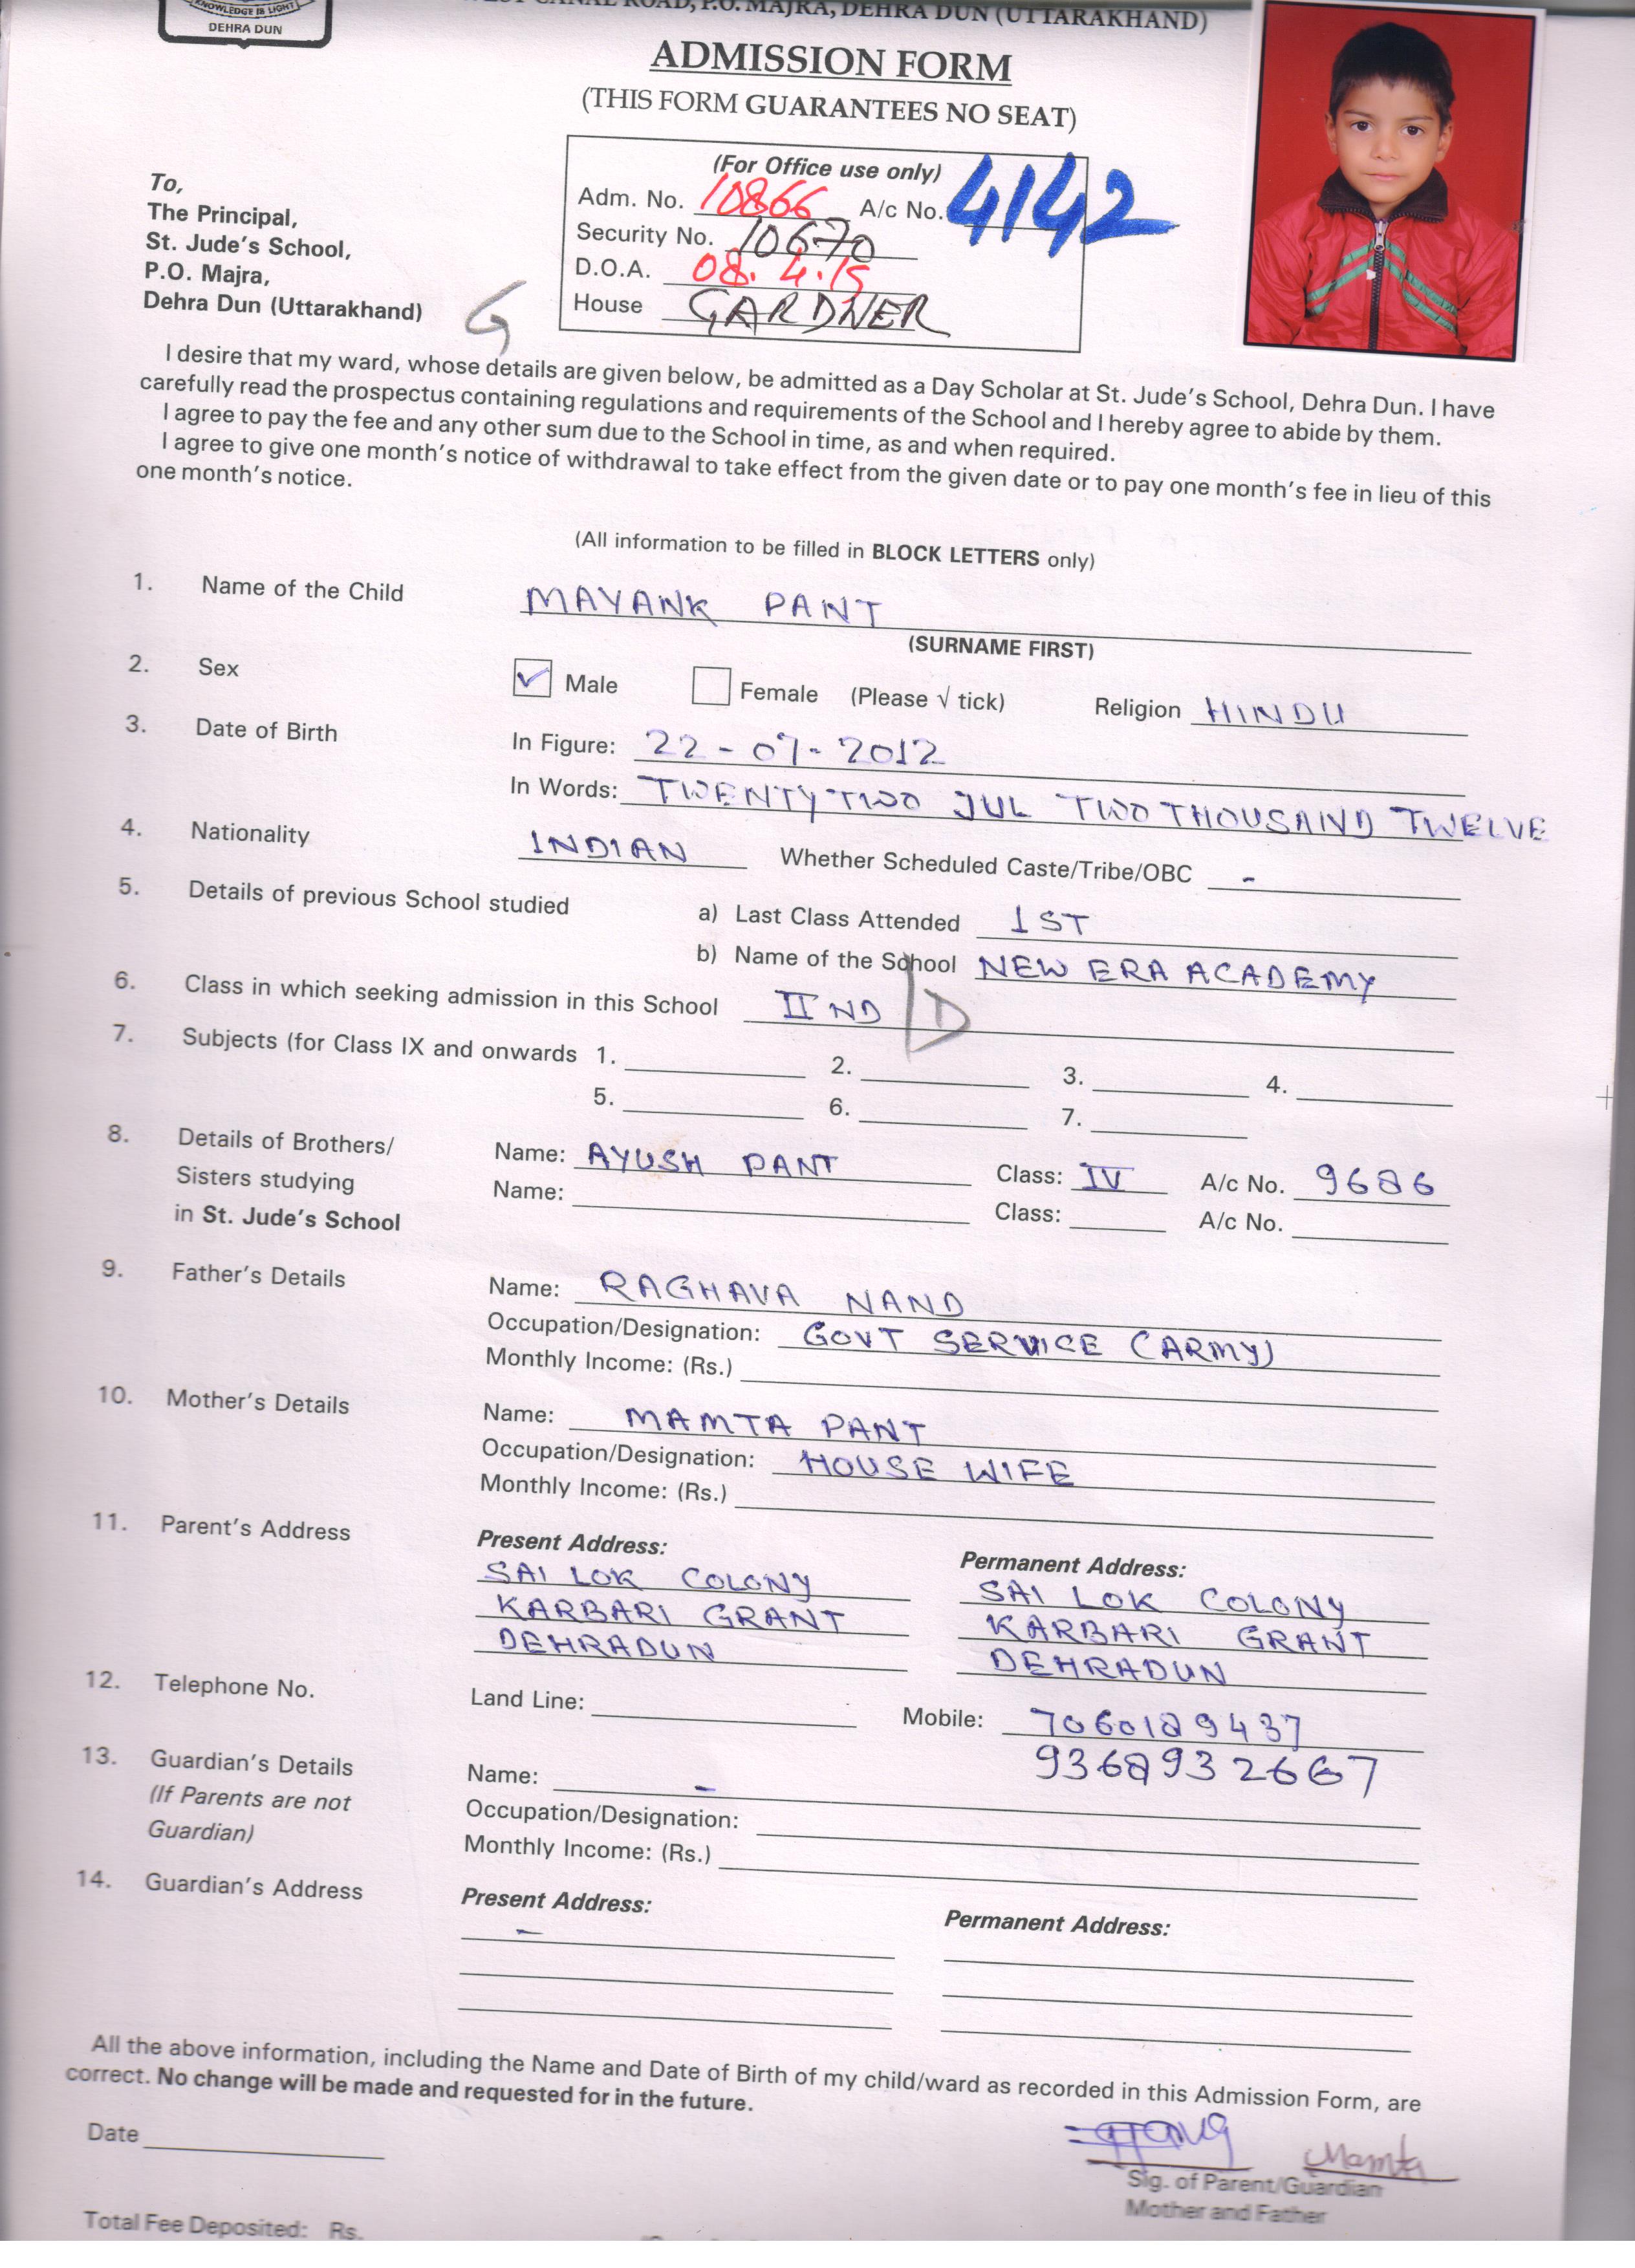 KNOWLEDGE IS LIGHT
DEHRA DUN
WEST CANAL ROAD, P.O. MAJRA, DEHRA DUN (UTTARAKHAND)
ADMISSION FORM
(THIS FORM GUARANTEES NO SEAT)
(For Office use only)
Adm. No. 10866 A/c No. 4142
Security No. 10670
D.O.A. 08.4.19
House GARDNER
To,
The Principal,
St. Jude's School,
P.O. Majra,
Dehra Dun (Uttarakhand)
G
I desire that my ward, whose details are given below, be admitted as a Day Scholar at St. Jude's School, Dehra Dun. I have
carefully read the prospectus containing regulations and requirements of the School and I hereby agree to abide by them.
I agree to pay the fee and any other sum due to the School in time, as and when required.
I agree to give one month's notice of withdrawal to take effect from the given date or to pay one month's fee in lieu of this
one month's notice.
(All information to be filled in BLOCK LETTERS only)
1. Name of the Child MAYANK PANT
(SURNAME FIRST)
2. Sex ✓ Male Female (Please √ tick) Religion HINDU
3. Date of Birth In Figure: 22-07-2012
In Words: TWENTY TWO JUL TWO THOUSAND TWELVE
4. Nationality INDIAN Whether Scheduled Caste/Tribe/OBC -
5. Details of previous School studied a) Last Class Attended 1ST
b) Name of the School NEW ERA ACADEMY
6. Class in which seeking admission in this School II ND / D
7. Subjects (for Class IX and onwards 1. 2. 3. 4.
5. 6. 7.
8. Details of Brothers/ Name: AYUSH PANT Class: IV A/c No. 9686
Sisters studying Name: Class: A/c No.
in St. Jude's School
9. Father's Details Name: RAGHAVA NAND
Occupation/Designation: GOVT SERVICE (ARMY)
Monthly Income: (Rs.)
10. Mother's Details Name: MAMTA PANT
Occupation/Designation: HOUSE WIFE
Monthly Income: (Rs.)
11. Parent's Address Present Address: Permanent Address:
SAI LOK COLONY SAI LOK COLONY
KARBARI GRANT KARBARI GRANT
DEHRADUN DEHRADUN
12. Telephone No. Land Line: Mobile: 7060189437
9368932667
13. Guardian's Details Name: -
(If Parents are not Occupation/Designation:
Guardian) Monthly Income: (Rs.)
14. Guardian's Address Present Address: Permanent Address:
-
All the above information, including the Name and Date of Birth of my child/ward as recorded in this Admission Form, are
correct. No change will be made and requested for in the future.
Date
Mamta
Sig. of Parent/Guardian
Mother and Father
Total Fee Deposited: Rs.